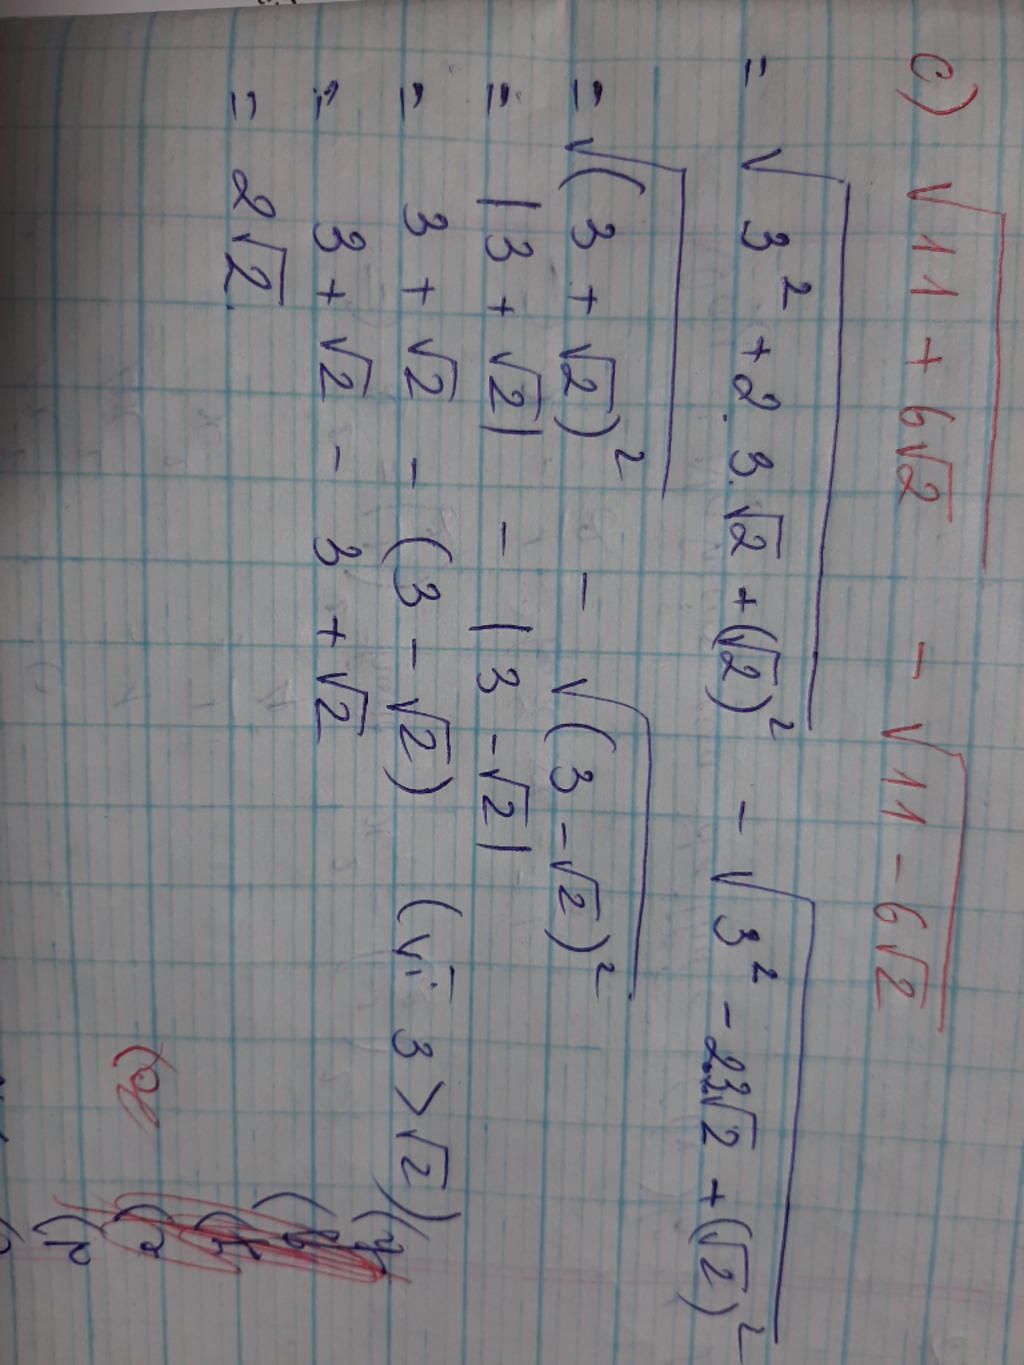 c) √11 + 6√2 - √11 - 6√2
= √3² + 2.3.√2 + (√2)² - √3² - 2.3.√2 + (√2)²
= √(3 + √2)² - √(3 - √2)²
= |3 + √2| - |3 - √2|
= 3 + √2 - (3 - √2) (vì 3 > √2)
= 3 + √2 - 3 + √2
= 2√2